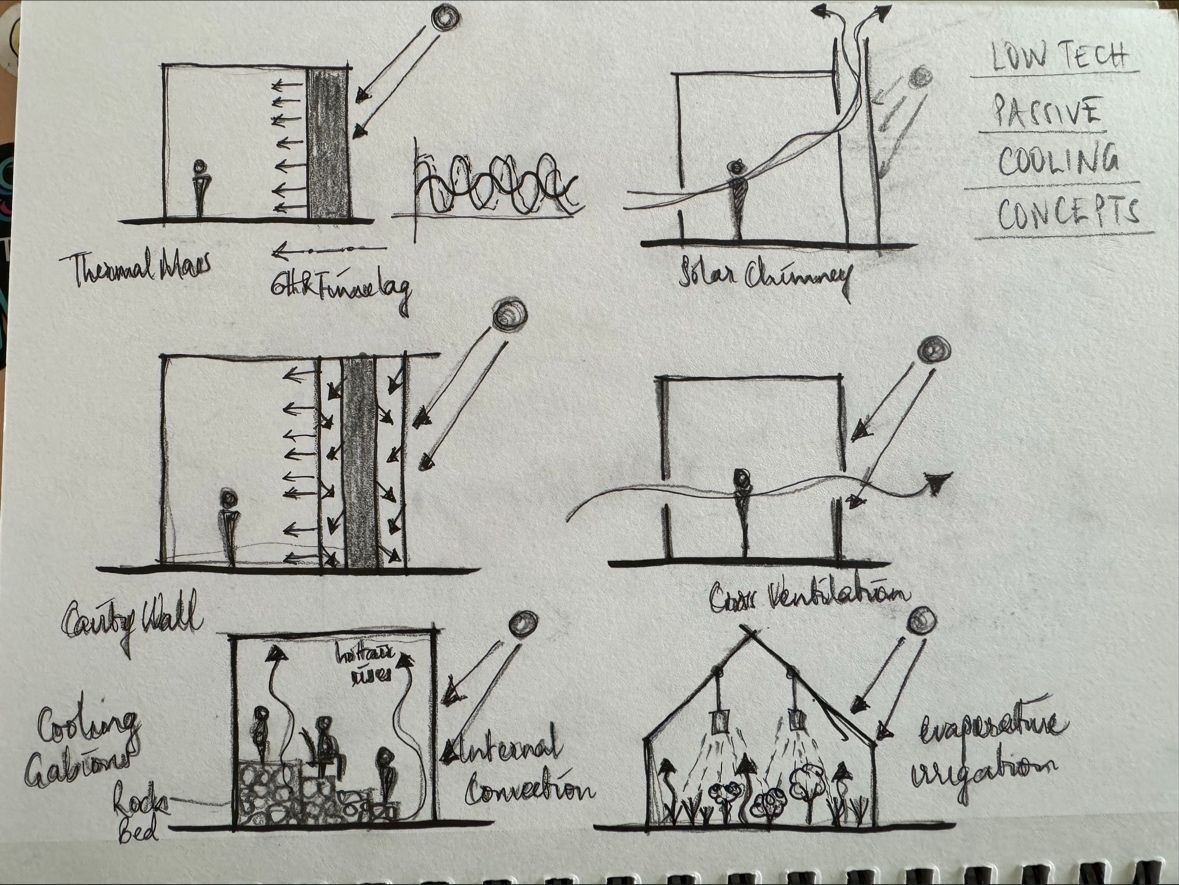 LOW TECH
PASSIVE
COOLING
CONCEPTS
Thermal Mass
6HR Time lag
Solar Chimney
Cavity Wall
Cross Ventilation
Cooling
Gabions
Rock
Bed
hot air
rises
Internal
Convection
evaporative
irrigation